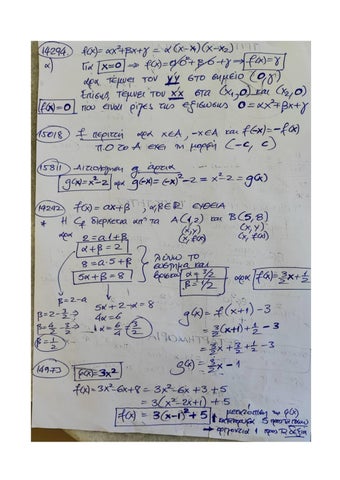 14294 f(x)=αx²+βx+γ = α(x-x₁)(x-x₂)
α) Για x=0 → f(x)=α·0²+β·0+γ → f(x)=γ
αρα τέμνει τον yy' στο σημείο (0,γ)
Επίσης τέμνει τον xx' στα (x₁,0) και (x₂,0)
f(x)=0 που είναι ρίζες της εξίσωσης 0=αx²+βx+γ
15018 f περιττή αρα x∈A, -x∈A και f(-x)=-f(x)
Π.Ο το A έχει τη μορφή (-c, c)
15811 Αιτιολόγηση g άρτια
g(x)=x²-2 αρα g(-x)=(-x)²-2=x²-2=g(x)
14242 f(x)=αx+β, α,β∈ℝ ΕΥΘΕΙΑ
* Η Cf διέρχεται απ' τα A(1,2) και B(5,8)
(x,y) (x,y)
αρα 2=α·1+β (x,f(x)) (x,f(x))
α+β=2
8=α·5+β
5α+β=8
λύνω το
σύστημα και
βρίσκω α=3/2
β=1/2
αρα f(x)=3/2x+1/2
β=2-α
β=2-3/2
β=4/2-3/2
β=1/2
5α+2-α=8
4α=6
α=6/4=3/2
g(x)=f(x+1)-3
=3/2(x+1)+1/2-3
=3/2x+3/2+1/2-3
g(x)=3/2x-1
14973 f(x)=3x²
f(x)=3x²-6x+8=3x²-6x+3+5
=3(x²-2x+1)+5
f(x)=3(x-1)²+5
κατακόρυφα 5 προς τα πάνω
οριζόντια 1 προς τα δεξιά